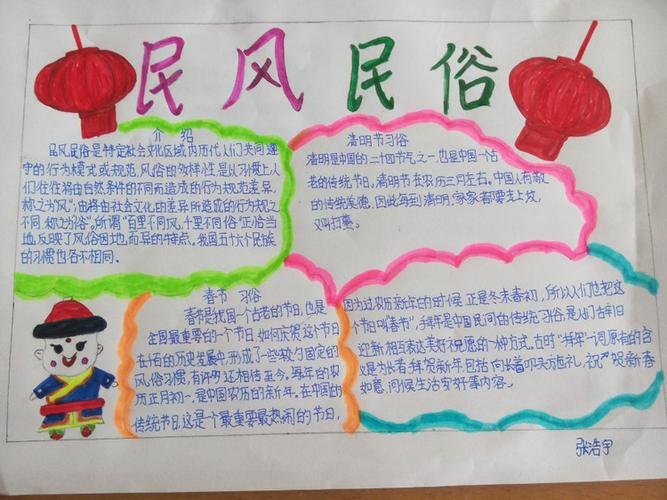 民风民俗
介绍
民风民俗是特定社会文化区域内历代人们共同遵
守的行为模式或规范。风俗的多样性,是以习惯上人
们往往将由自然条件的不同而造成的行为规范差异,
称之为"风";由将由社会文化的差异所造成的行为规之
不同,称之为"俗"。所谓"百里不同风,千里不同俗"正恰当
地反映了风俗因地而异的特点。我国五十六个民族
的习惯也各不相同.
清明节习俗
清明是中国的二十四节气之一,也是中国一个古
老的传统节日,清明节在农历三月左右。中国人有敬
的传统美德,因此每到清明,家家都要去上坟,
又叫扫墓。
春节 习俗
春节是我国一个古老的节日,也是
全国最重要的一个节日,如何庆贺这个节日
在千百的历史发展中,形成了一些较为固定的
风俗习惯,有许多还相传至今。每年的农
历正月初一,是中国农历的新年。在中国的
传统节日,这是个最重要最热闹的节日,
因为过农历新年的时候正是冬末春初,所以人们也把这
个节日叫"春节",拜年是中国民间的传统习俗,是人们古年旧
迎新相互表达美好祝愿的一种方式。古时"拜年"一词原有的含
义是为长者拜贺新年,包括向长者叩头施礼,祝"贺新春
如意,问候生活安好事内容。
张浩宇